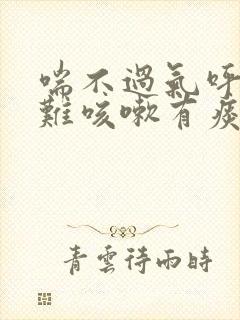 喘不過氣呼
難咳嗽有痰
青雲待雨時